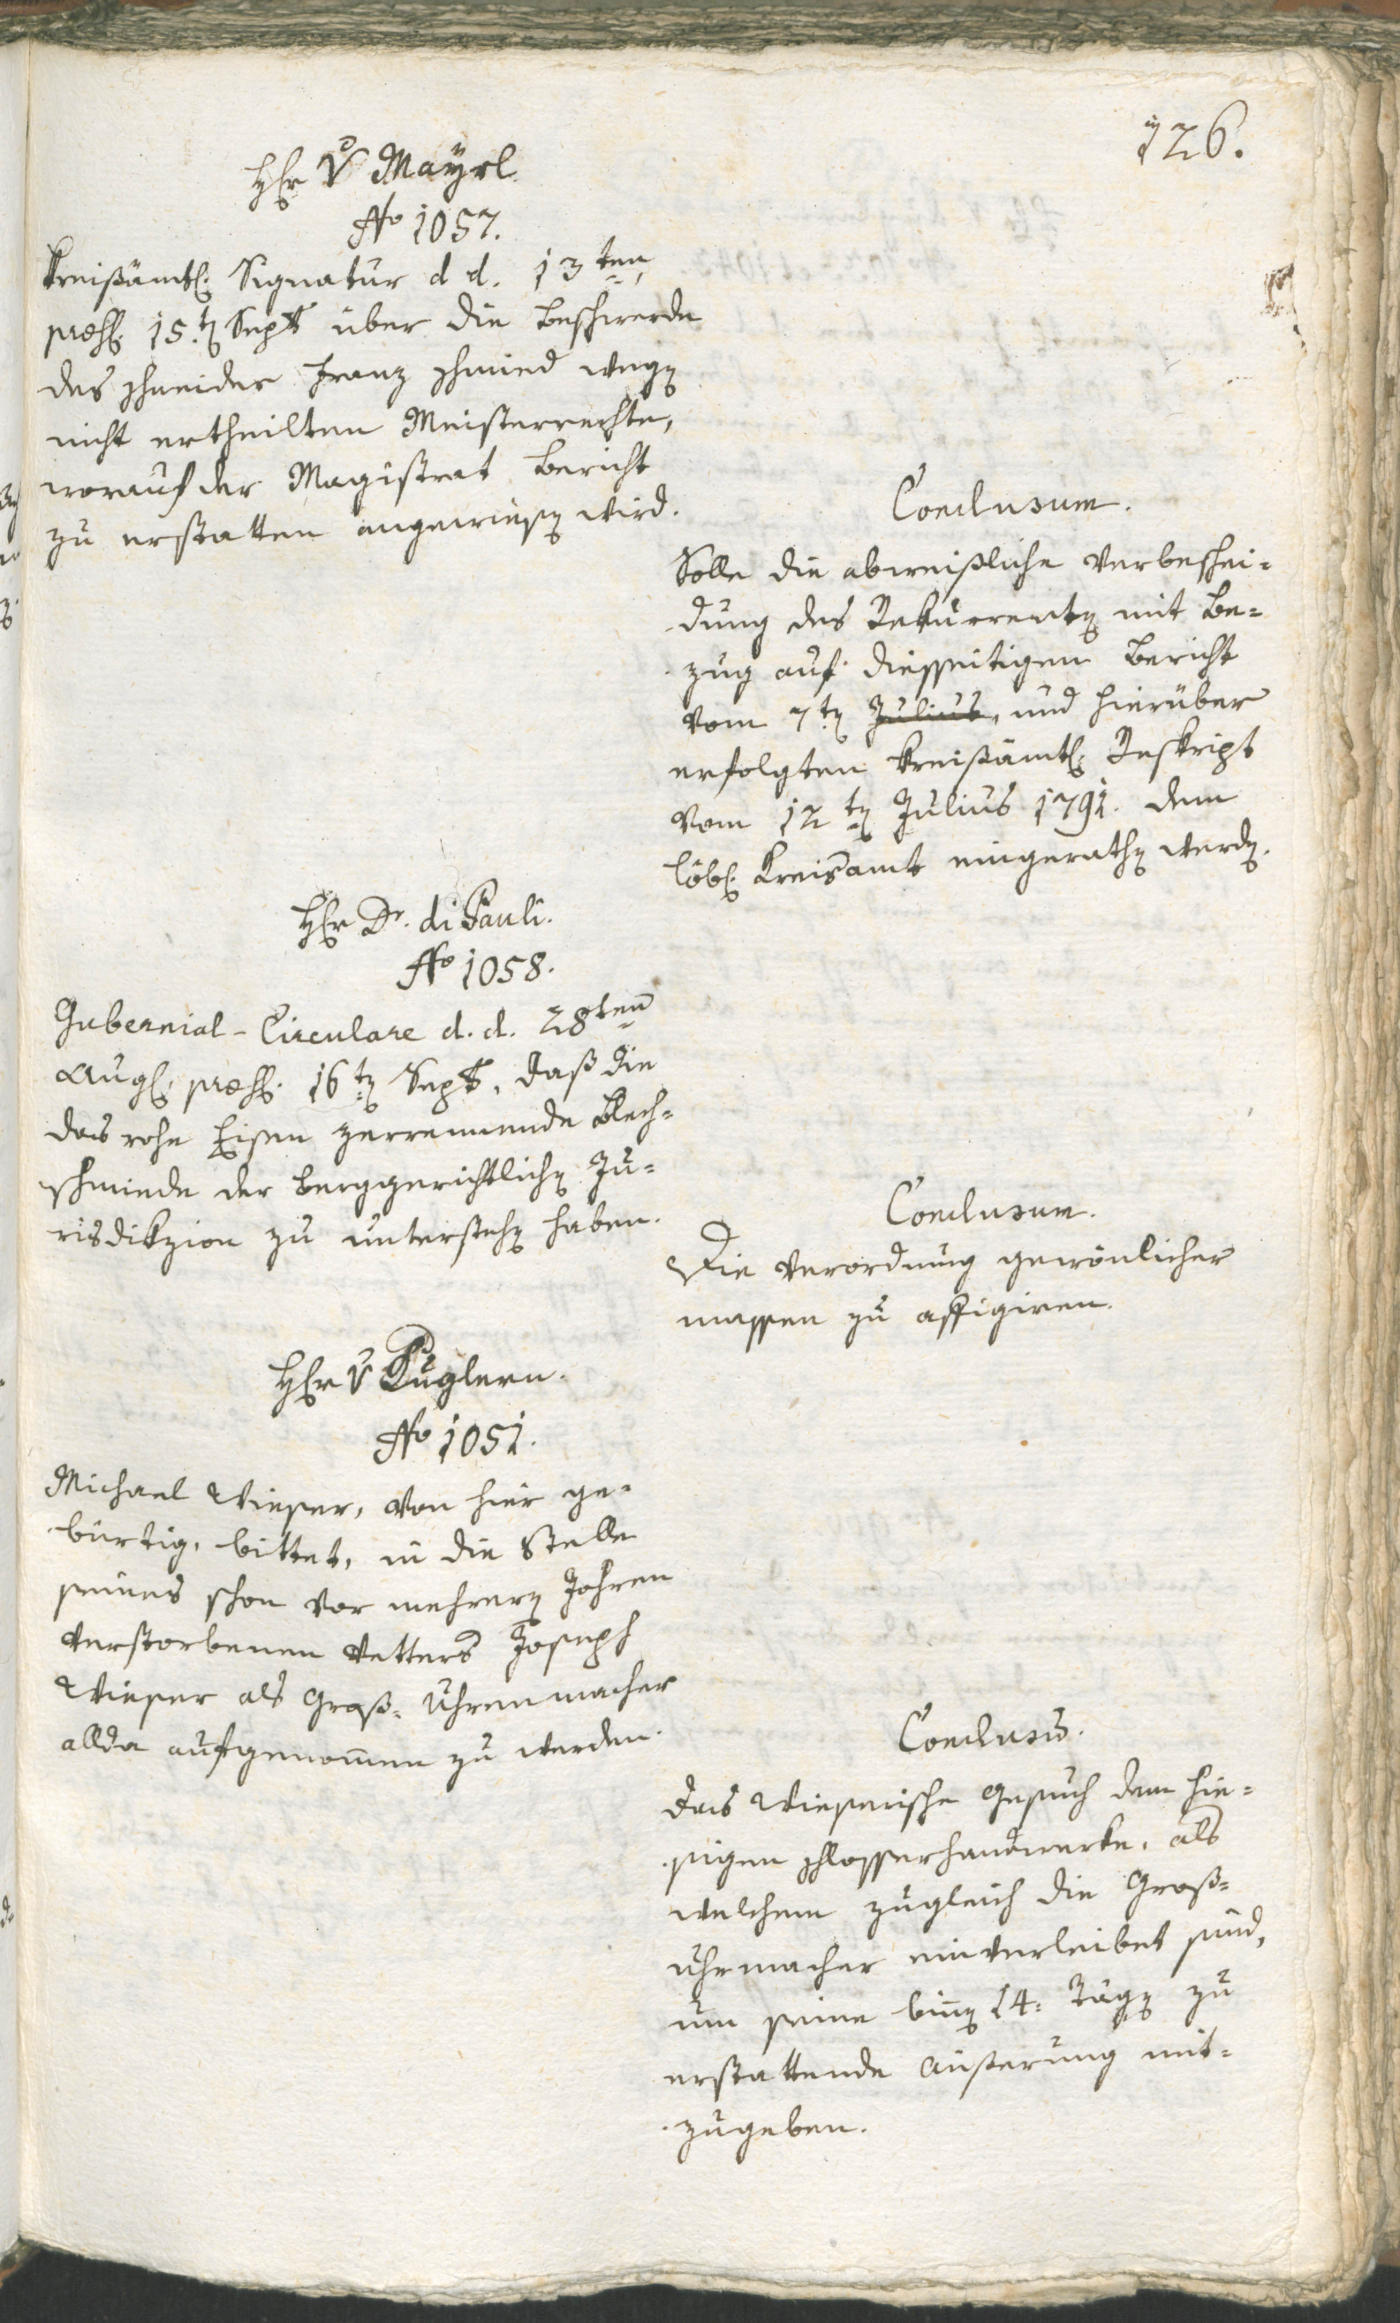 126.
Hr v Mayrl
No 1057.
Kreißämtl. Signatur d d. 13ten
præs. 15.tn Sept über die Beschwerde
des Schneider Franz Schmied wegen
nicht ertheilten Meisterrechte,
worauf der Magistrat Bericht
zu erstatten angewiesen wird.
Conclusum.
Solle die abweißliche Verbeschei=
dung des Rekurrenten mit Be=
zug auf diesseitigen Bericht
vom 7tn Julius, und hierüber
erfolgten kreißämtl. Reskript
vom 12tn Julius 1791. dem
löbl. Kreisamt eingerathen werden.
Hr Dr. di Pauli.
No 1058.
Gubernial-Circulare d. d. 28ten
Augl. præs. 16tn Sept, daß die
das rohe Eisen zerrennende Blech=
schmiede der berggerichtlichen Ju=
risdikzion zu unterstehen haben.
Conclusum.
Die Verordnung gewönlicher
massen zu affigiren.
Hr v Kuglern.
No 1051.
Michael Wieser, von hier ge=
bürtig, bittet, in die Stelle
seines schon vor mehreren Jahren
verstorbenen Vetters Joseph
Wieser als Groß=Uhrenmacher
allda aufgenommen zu werden.
Conclusum.
Das Wieserische Gesuch dem hie=
sigen Schlosserhandwerke, als
welchem zugleich die Groß=
uhrmacher einverleibet sind,
um seine binnen 14. Tägen zu
erstattende Äußerung mit=
zugeben.